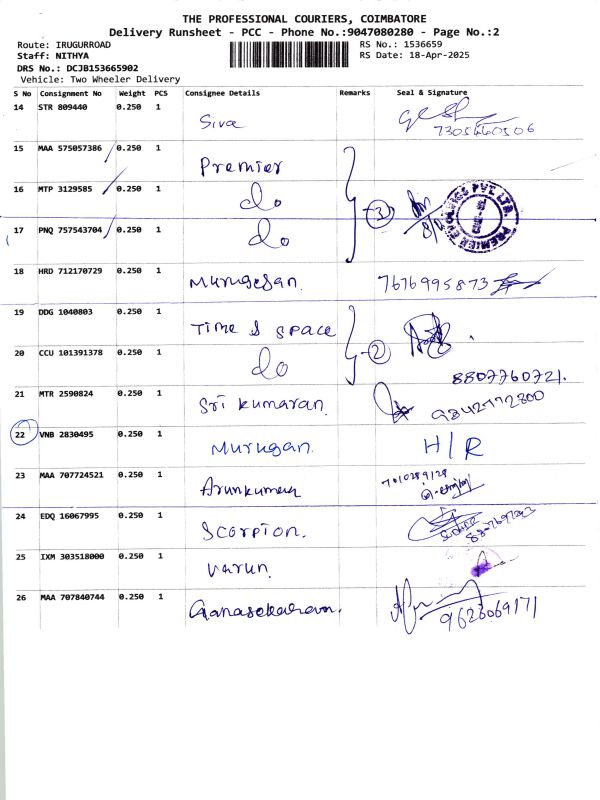 THE PROFESSIONAL COURIERS, COIMBATORE
Delivery Runsheet - PCC - Phone No.:9047080280 - Page No.:2
Route: IRUGURROAD RS No.: 1536659
Staff: NITHYA RS Date: 18-Apr-2025
DRS No.: DCJB153665902
Vehicle: Two Wheeler Delivery
S No Consignment No Weight PCS Consignee Details Remarks Seal & Signature
14 STR 809440 0.250 1 Siva
15 MAA 575057386 0.250 1 Premier
16 MTP 3129585 0.250 1 do
17 PNQ 757543704 0.250 1 do 3
PREMIER EVOLVICS PVT. LTD.
18 HRD 712170729 0.250 1 Murugesan. 7676995873
19 DDG 1040803 0.250 1 Time & space
20 CCU 101391378 0.250 1 do 2 8807760721.
21 MTR 2590824 0.250 1 Sri kumaran. 9842772800
22 VNB 2830495 0.250 1 Murugan. H/R
23 MAA 707724521 0.250 1 Arunkumar
24 EDQ 16067995 0.250 1 Scorpion.
25 IXM 303518000 0.250 1 Varun.
26 MAA 707840744 0.250 1 Ganasekaran. 9626069171